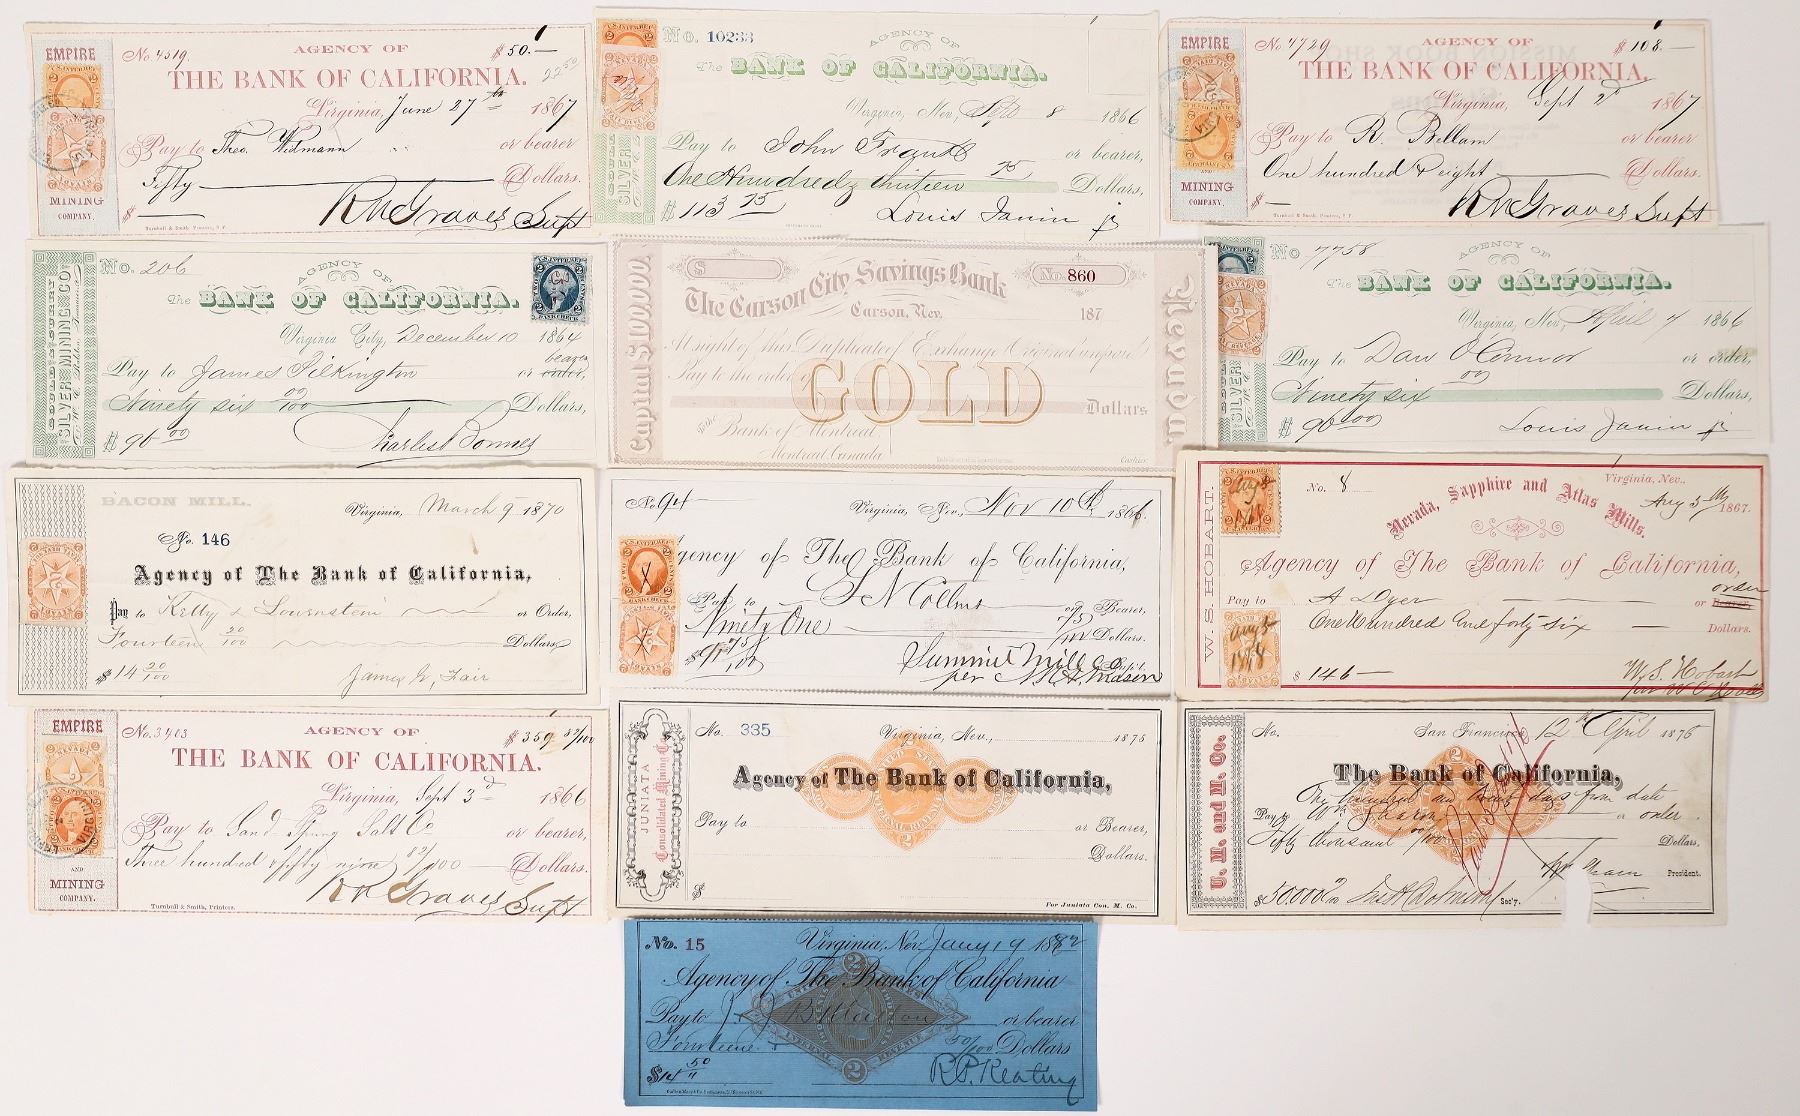 EMPIRE
No. 4519.
AGENCY OF
$50.—
THE BANK OF CALIFORNIA.
22 50
Virginia, June 27th 1867
Pay to Theo. Widmann or bearer
Fifty Dollars.
MINING
COMPANY.
$
R N Graves Supt
Turnbull & Smith, Printers, S.F.
No. 10233
AGENCY OF
The BANK OF CALIFORNIA.
Virginia, Nev, 8 1866
Pay to John or bearer,
One Hundred & thirteen 75 Dollars,
$113 75
Louis Janin jr
SILVER
EMPIRE
No. 4729
AGENCY OF
$108.—
THE BANK OF CALIFORNIA.
Virginia, Sept 2d 1867
Pay to R. Bellam or bearer
One hundred & eight Dollars.
AND
MINING
COMPANY.
$
R N Graves Supt
Turnbull & Smith, Printers, S.F.
GOULD & CURRY
SILVER MINING CO.
No. 206
AGENCY OF
The BANK OF CALIFORNIA.
Virginia City, December 10 1864
bearer
Pay to James Pilkington or order,
Ninety six 00/100 Dollars,
$96 00
Charles L Bonnes
U.S. INTER. REV.
BANK CHECK
$
The Carson City Savings Bank
No. 860
Carson, Nev. 187
At sight of this Duplicate of Exchange (Original unpaid)
Pay to the order of
GOLD
Dollars
To the Bank of Montreal,
Montreal, Canada
Cashier.
Capital $100,000
Nevada.
No 7758
AGENCY OF
The BANK OF CALIFORNIA.
Virginia, Nev, April 7 1866
Pay to Dan O'Connor or order,
Ninety six 00 Dollars,
$96 00
Louis Janin jr
SILVER
BACON MILL.
Virginia, March 9 1870
No. 146
Agency of The Bank of California,
Pay to Kelly & Lowenstein or Order,
Fourteen 20/100 Dollars
$14 20/100
James G. Fair
No. 94
Virginia, Nev., Nov 10th 1866.
Agency of The Bank of California,
Pay to S N Collins or Bearer,
Ninety One 75/100 Dollars.
$91 75/100
Summit Mill Co
Supt.
per
W. S. HOBART.
Virginia, Nev.,
No. 8
Nevada, Sapphire and Atlas Mills.
Aug 5th 1867.
Agency of The Bank of California,
order
Pay to A Dyer or Bearer,
One Hundred and forty six Dollars.
$146—
W. S. Hobart
EMPIRE
No. 3403
AGENCY OF
$359 83/100
THE BANK OF CALIFORNIA.
Virginia, Sept 3d 1866
Pay to Sand Spring Salt Co or bearer,
Three hundred & fifty nine 83/100 Dollars.
AND
MINING
COMPANY.
R N Graves Supt
Turnbull & Smith, Printers.
JUNIATA
Consolidated Mining Co
No. 335
Virginia, Nev., 1875
Agency of The Bank of California,
Pay to or Bearer,
Dollars.
$
For Juniata Con. M. Co.
U. M. and M. Co.
No.
San Francisco, 12th April 1876
The Bank of California,
One hundred and days from date
Pay to Wm Sharon or order
Fifty thousand 00/100 Dollars,
President.
$50.000 00
Sec'y.
No. 15
Virginia, Nev. Jany 19 1882
Agency of The Bank of California
Pay to or bearer
Fourteen 50/100 Dollars
$14 50
R. P. Keating